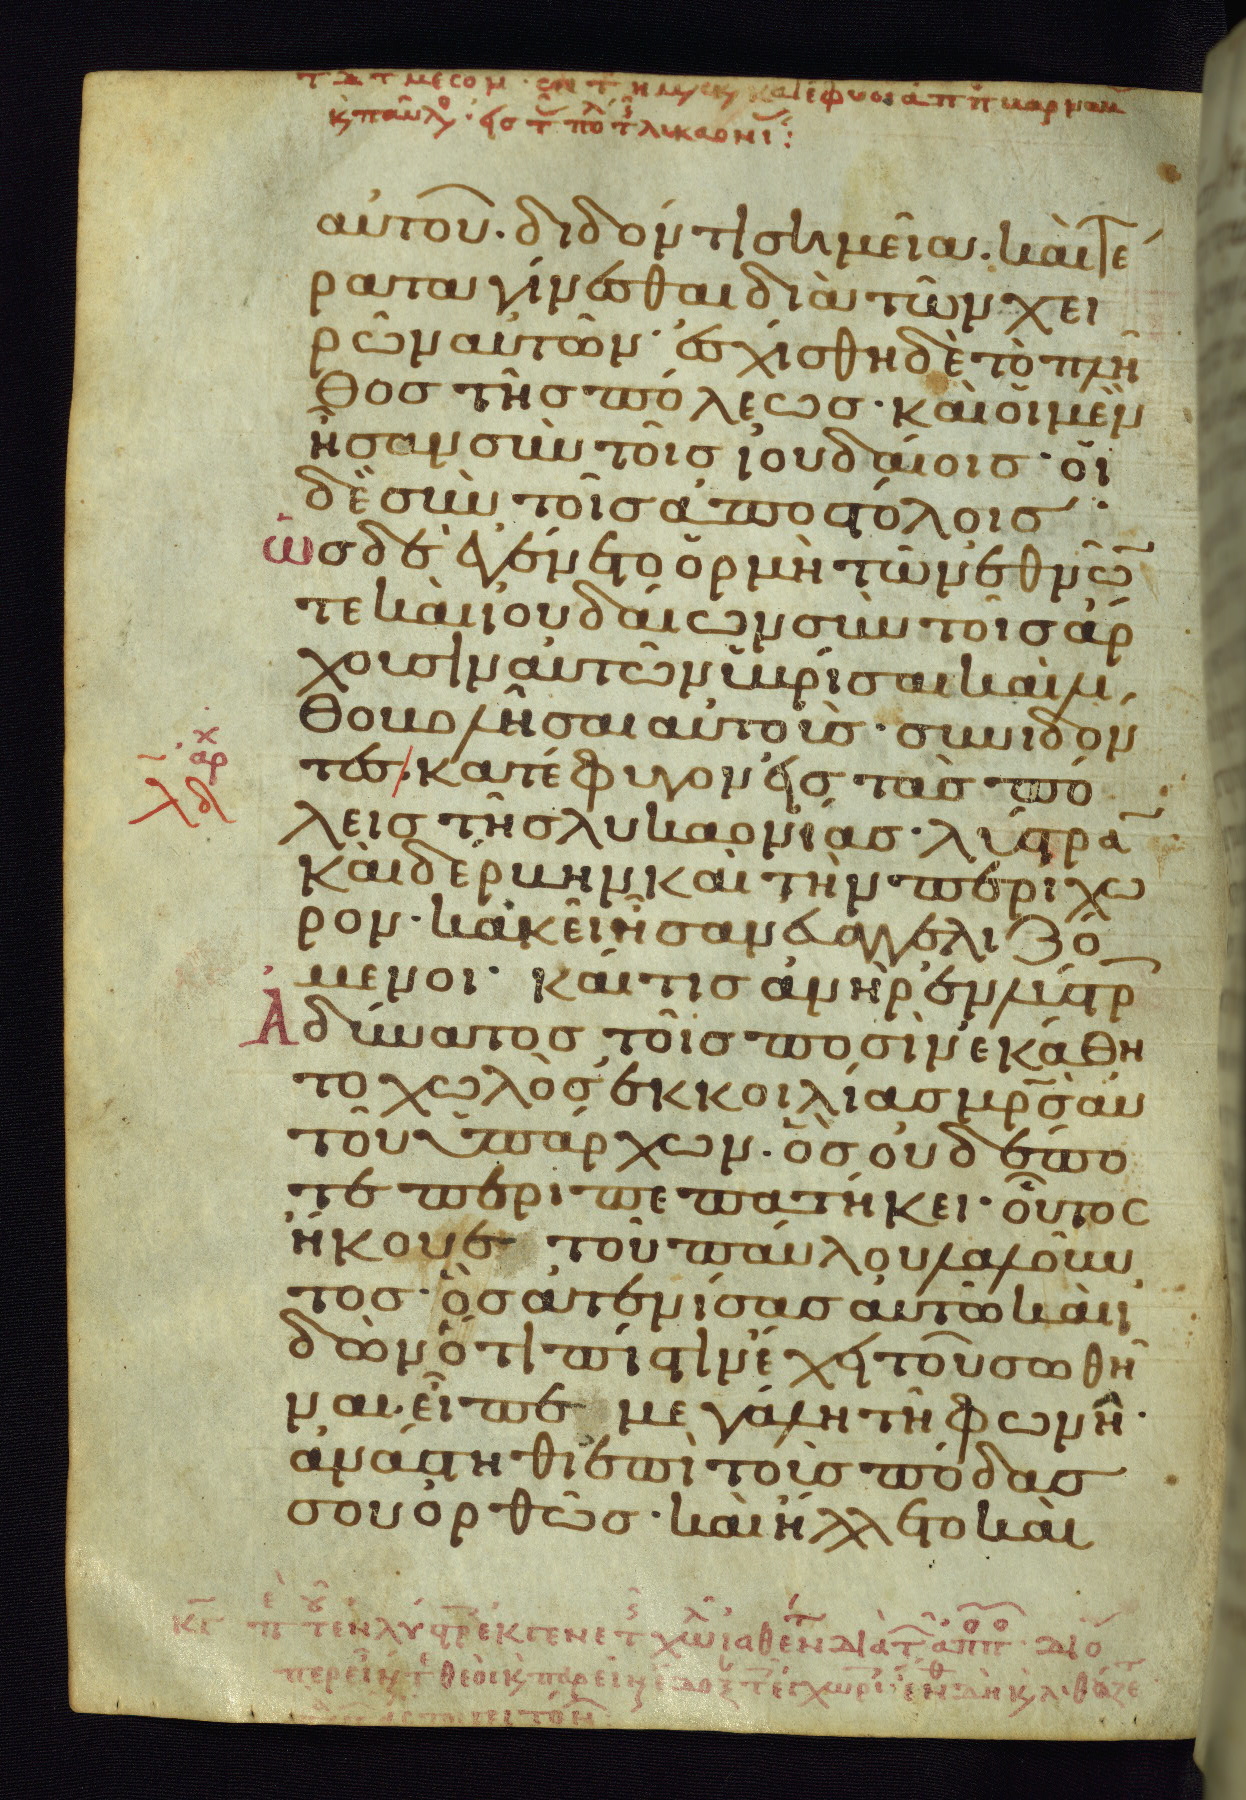 αὐτοῦ. διδόντι σημεῖα. καὶ τέ
ρατα γίνεσθαι διὰ τῶν χει
ρῶν αὐτῶν· ἐσχίσθη δὲ τὸ πλῆ
θος τῆς πόλεως· καὶ οἱ μὲν
ἦσαν σὺν τοῖς ἰουδαίοις· οἱ
δὲ σὺν τοῖς ἀποστόλοις·
ὡς δὲ ἐγένετο ὁρμὴ τῶν ἐθνῶ̅
τε καὶ ἰουδαίων σὺν τοῖς ἄρ
χουσιν αὐτῶν ὑβρίσαι καὶ λι
θοβολῆσαι αὐτοὺς· συνιδόν
τες κατέφυγον εἰς τὰς πό
λεις τῆς λυκαονίας· λύστρα̅
καὶ δέρβην καὶ τὴν περίχω
ρον· κἀκεῖ ἦσαν εὐαγγελιζό
μενοι· καί τις ἀνὴρ ἐν λύστρ
ἀδύνατος τοῖς ποσὶν ἐκάθη
το χωλὸς ἐκ κοιλίας μρ̅ς αὐ
τοῦ ὑπάρχων. ὃς οὐδέπο
τε περιπεπατήκει· οὗτος
ἤκουσε τοῦ παύλου λαλοῦν
τος· ὃς ἀτενίσας αὐτῶ καὶ ἰ
δὼν ὅτι πίστιν ἔχει τοῦ σωθῆ
ναι. εἶπε μεγάλη τῆ φωνῆ·
ἀνάστηθι ἐπὶ τοὺς πόδας
σου ὀρθῶς· καὶ ἥλλετο καὶ